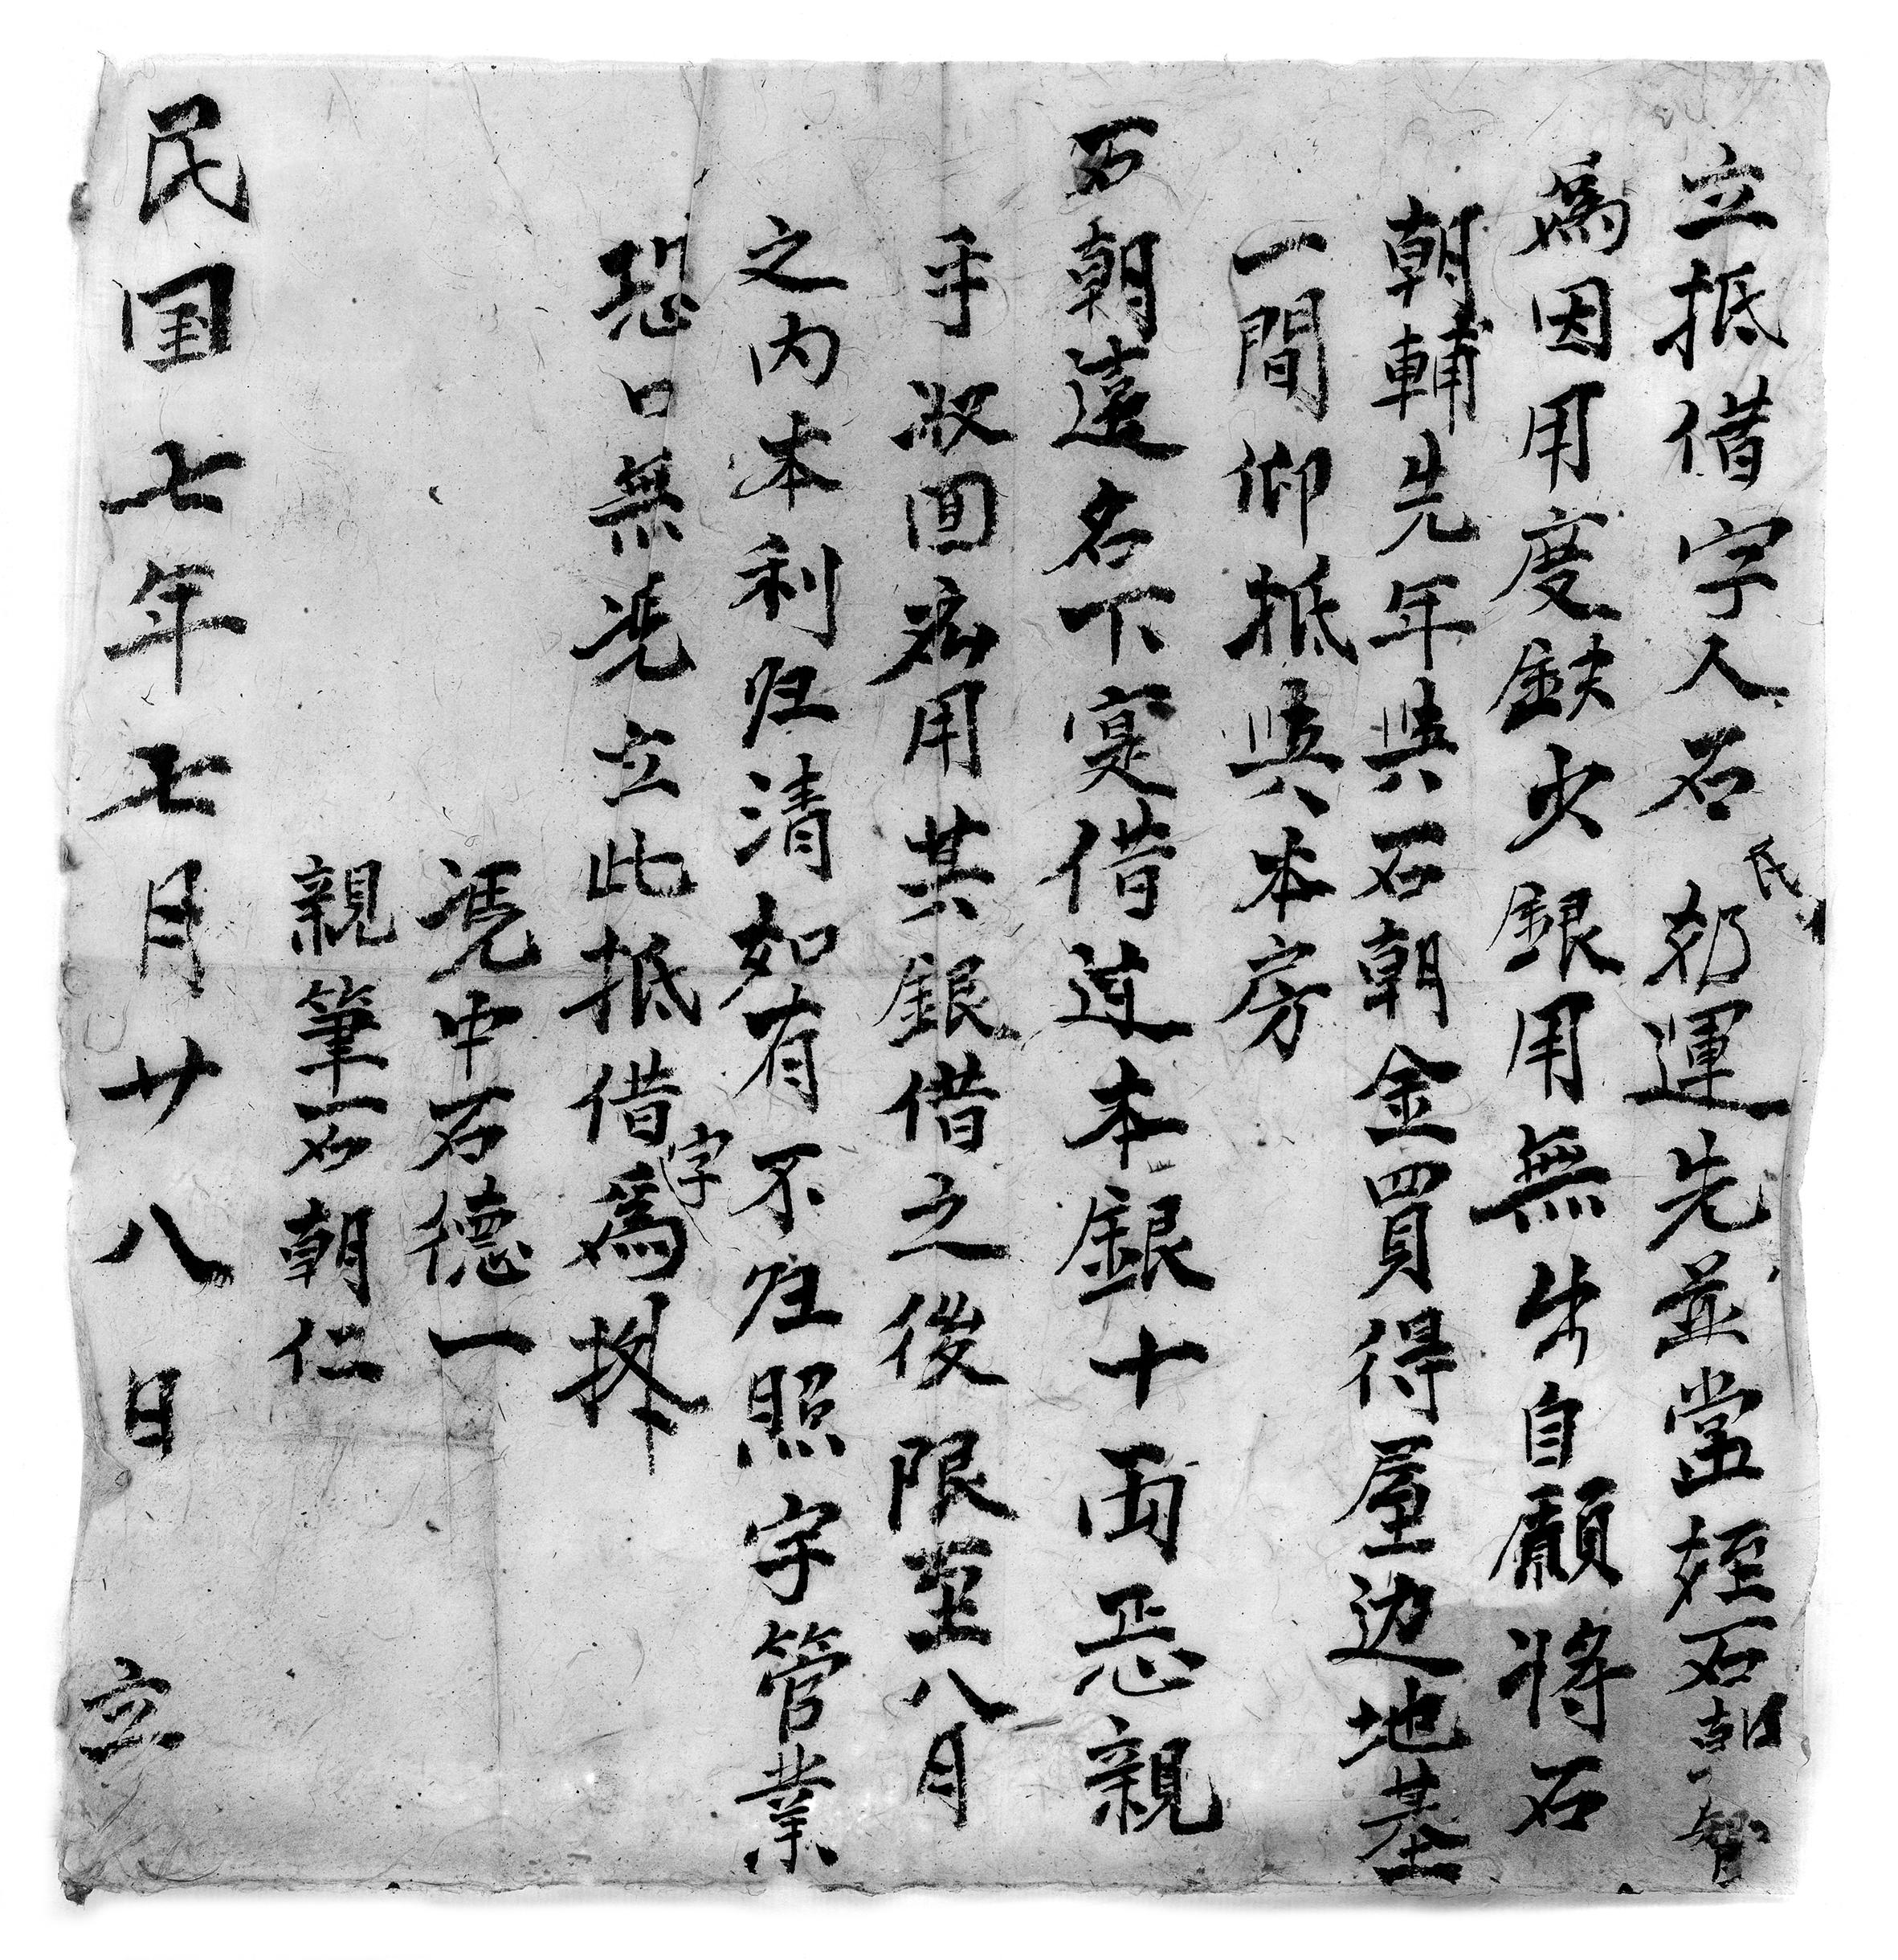 立抵借字人石氏郑運先並當姪石朝智
為因用度缺少銀用無出自願將石
朝輔先年與石朝金買得屋边地基
一間仰抵與本房
石朝遠名下寔借道本銀十両恁親
手收囬為用其銀借之後限至八月
之内本利归清如有不归照字管業
恐口無凭立此抵借字為㨿
凭中石德一
親筆石朝仁
民国七年七月廿八日 立